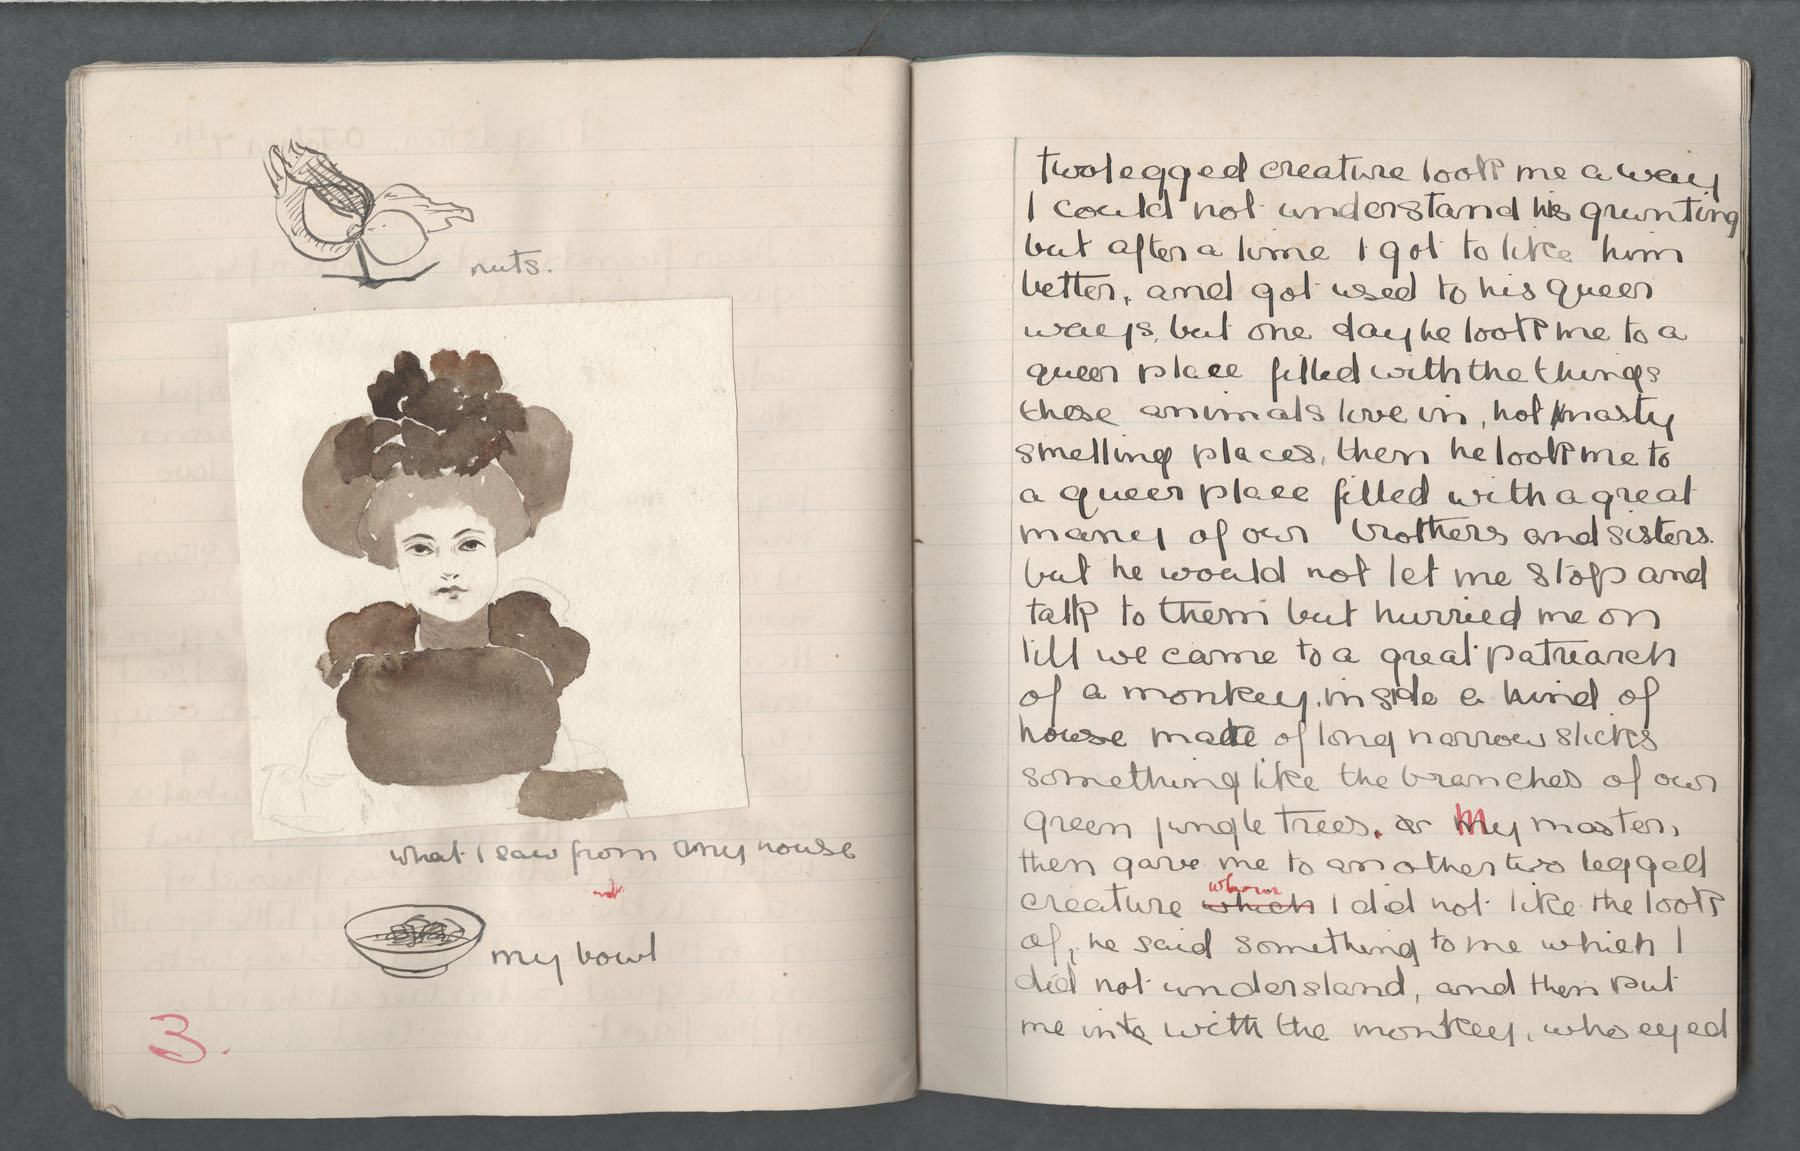 nuts.
what I saw from my house
my bowl
3.
two legged creature took me a way
I could not understand his grunting
but after a time I got to like him
better, and got used to his queer
ways, but one day he took me to a
queer place filled with the things
these animals live in, hot nasty
smelling places, then he took me to
a queer place filled with a great
many of our brothers and sisters.
but he would not let me stop and
talk to them but hurried me on
till we came to a great patriarch
of a monkey, inside a kind of
house made of long narrow sticks
something like the branches of our
green jungle trees. or My master,
then gave me to another two legged
whom
creature which I did not like the look
of, he said something to me which I
did not understand, and then put
me into with the monkey, who eyed